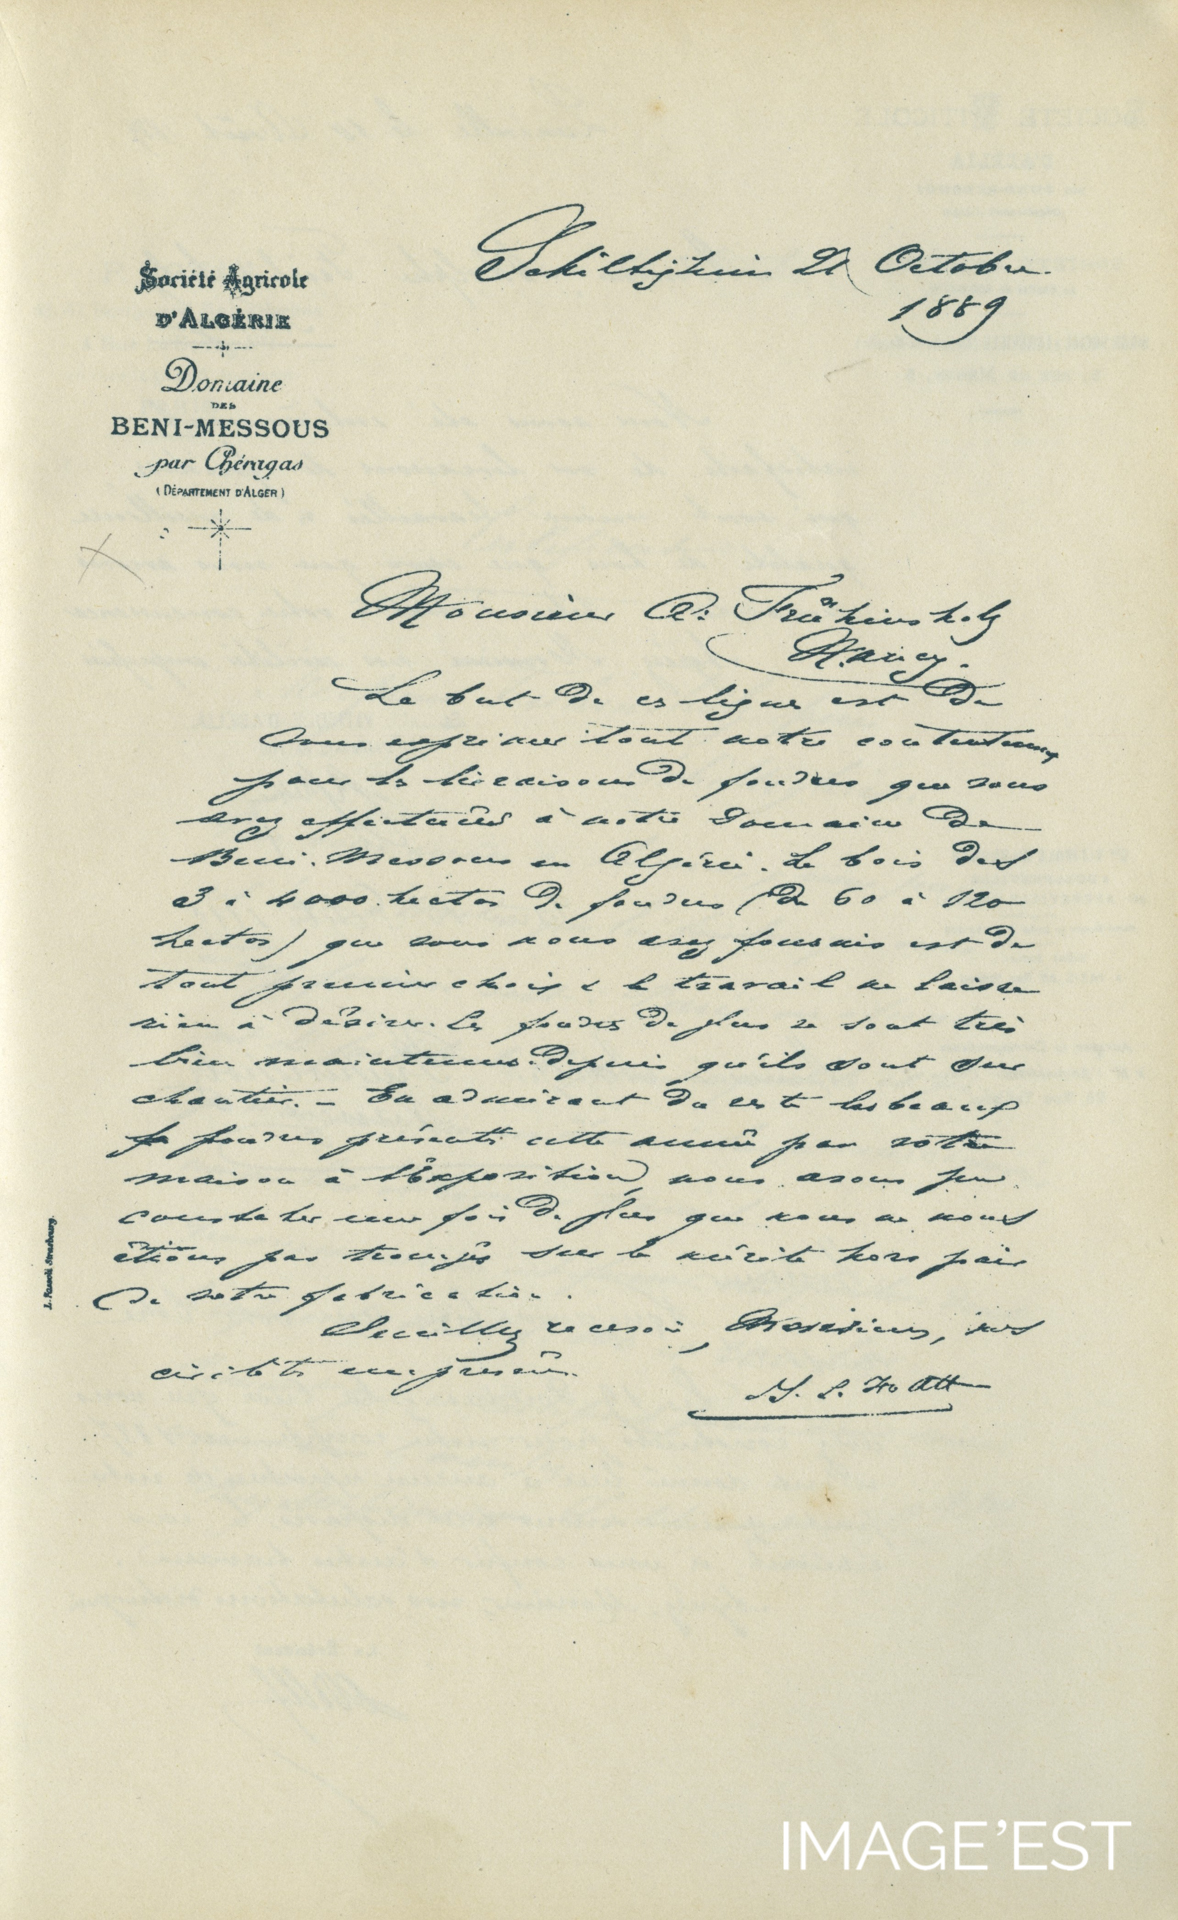 Schiltigheim 21 Octobre
1889
Société Agricole
D'ALGÉRIE
Domaine
DES
BENI-MESSOUS
par Chéragas
(DÉPARTEMENT D'ALGER)
Monsieur A. Frühinsholz
Nancy.
Le but de ces lignes est de
vous exprimer tout notre contentement
pour les livraisons de foudres que vous
avez effectuées à notre Domaine de
Beni-Messous en Algérie. Le bois des
3 à 4000 hectos de foudres (de 60 à 120
hectos) que vous nous avez fournis est de
tout premier choix & le travail ne laisse
rien à désirer. Les foudres de plus se sont très
bien maintenus depuis qu'ils sont sur
chantier. – En admirant du reste les beaux
foudres présentés cette année par votre
maison à l'Exposition, nous avons pu
constater une fois de plus que nous ne nous
étions pas trompés sur le mérite hors pair
de votre fabrication.
Veuillez recevoir, Monsieur, nos
civilités empressées.
L.
J. Strasbourg
IMAGE'EST